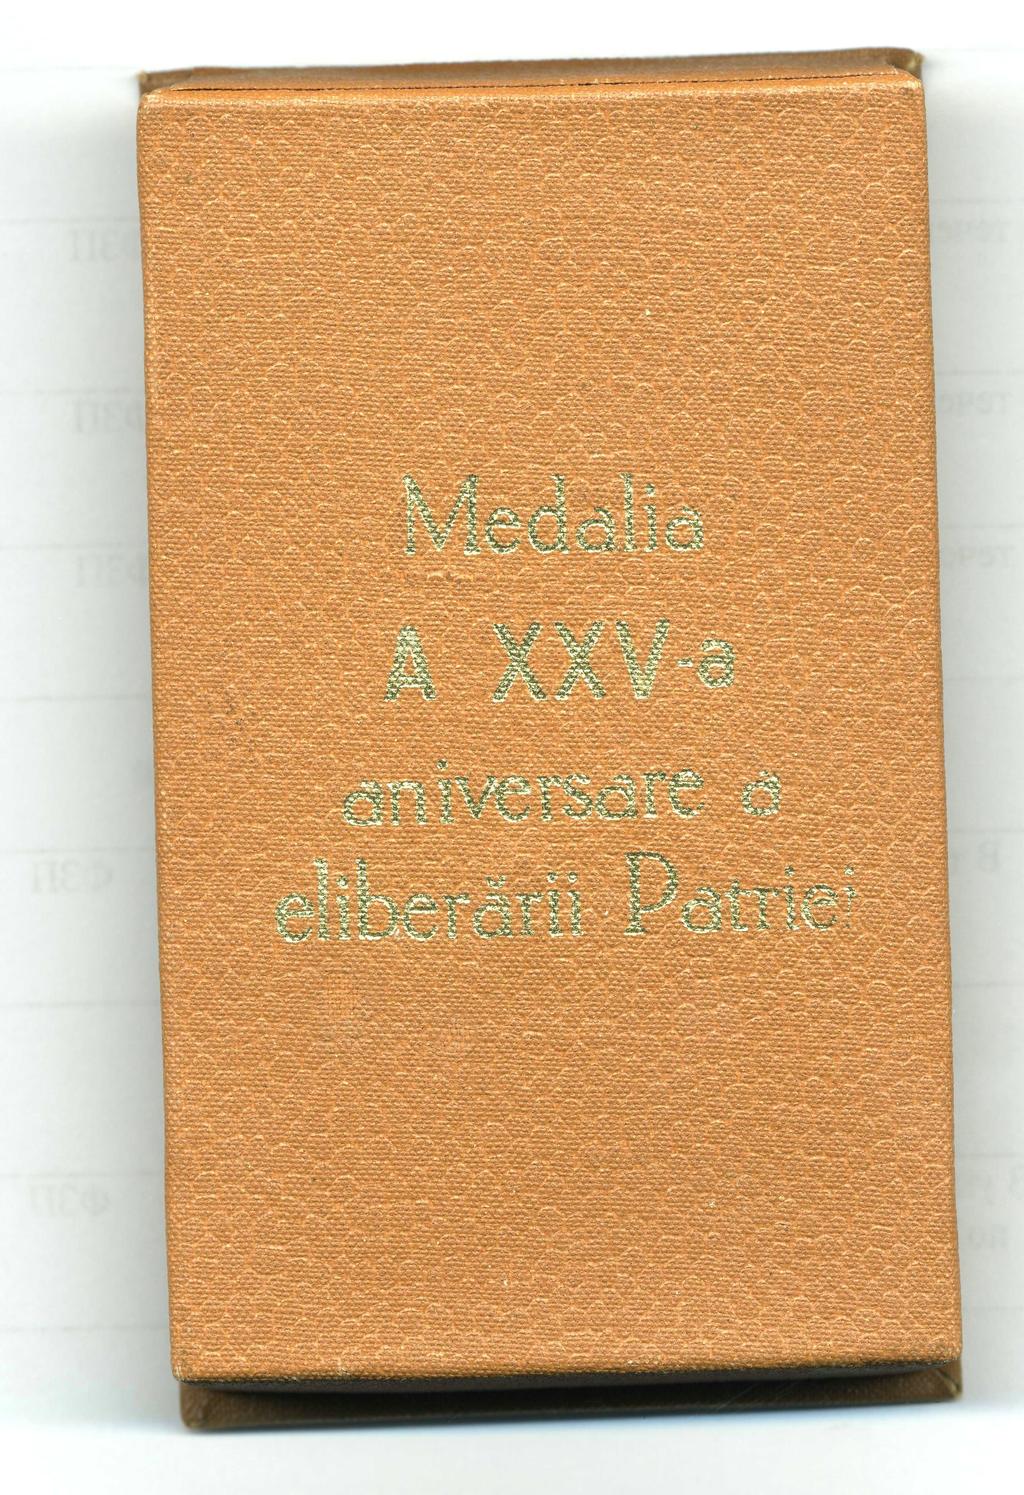 Medalia
A XXV-a
aniversare a
eliberării Patriei